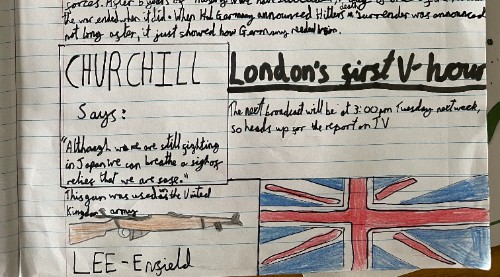 forces. After 6 years of
the war ended when it did. When Germany announced Hitlers death surrender was announced
not long after, it just showed how Germany needed him.
CHURCHILL
Says:
"Although we are still fighting
in Japan we can breathe a sigh of
relief that we are safe."
This gun was used as the United
Kingdoms army
LEE-Enfield
London's first V-hour
The next broadcast will be at 3:00pm Tuesday next week,
so heads up for the report on TV